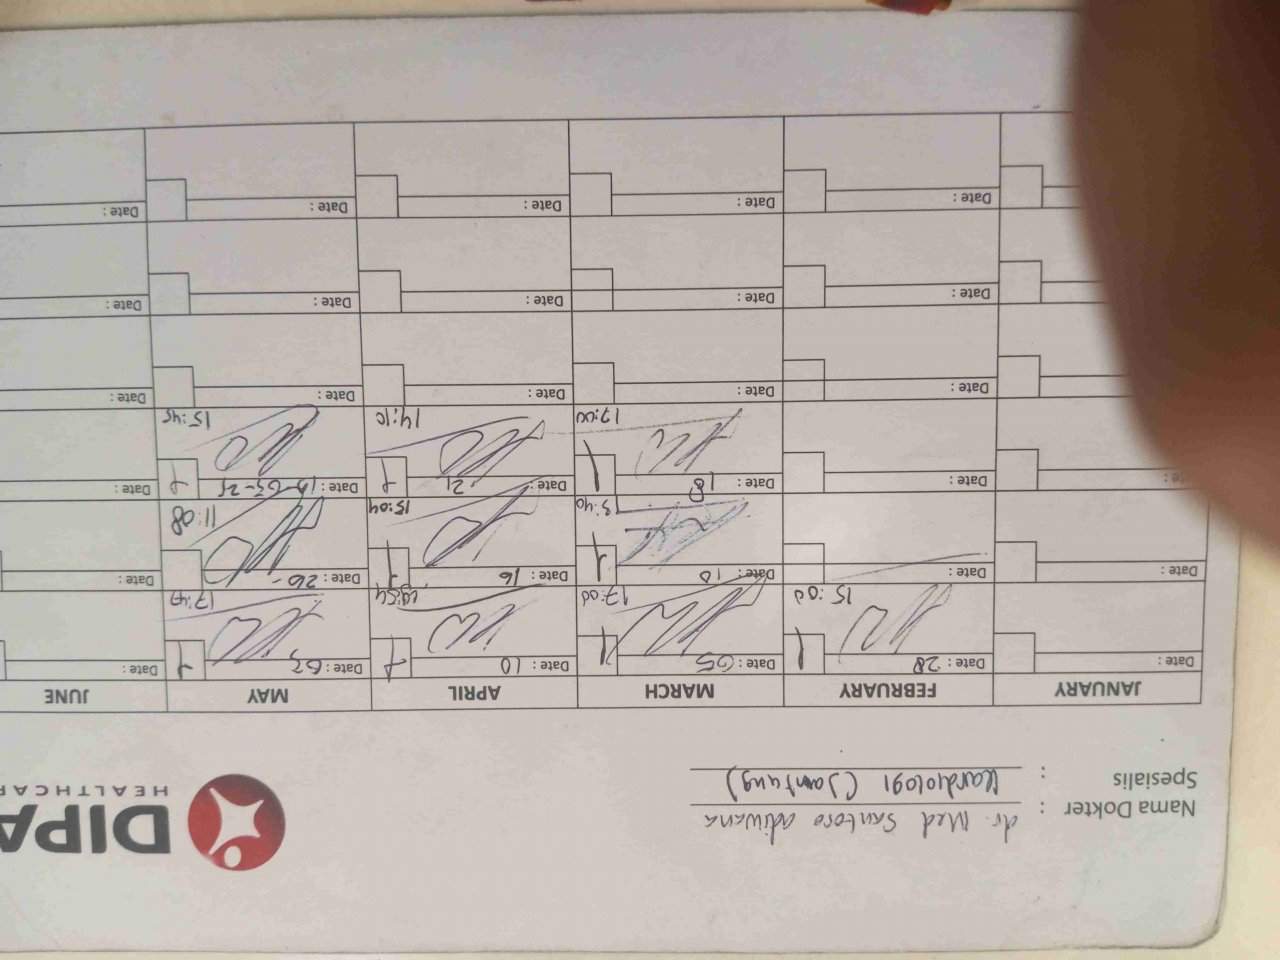 Nama Dokter : dr. Med Santoso adiwana
Spesialis : Kardiologi (Jantung)
DIPA
HEALTHCAR
JANUARY FEBRUARY MARCH APRIL MAY JUNE
Date : Date : 28 Date : 05 Date : 10 Date : 03 Date :
15:00 17:00 17:47
Date : Date : Date : 10 Date : 16 Date : 26 Date :
13:40 15:04 11:08
Date : Date : Date : 18 Date : 21 Date : Date :
17:00 14:10 15:45
Date : Date : Date : Date : Date : Date :
Date : Date : Date : Date : Date :
Date : Date : Date : Date : Date :